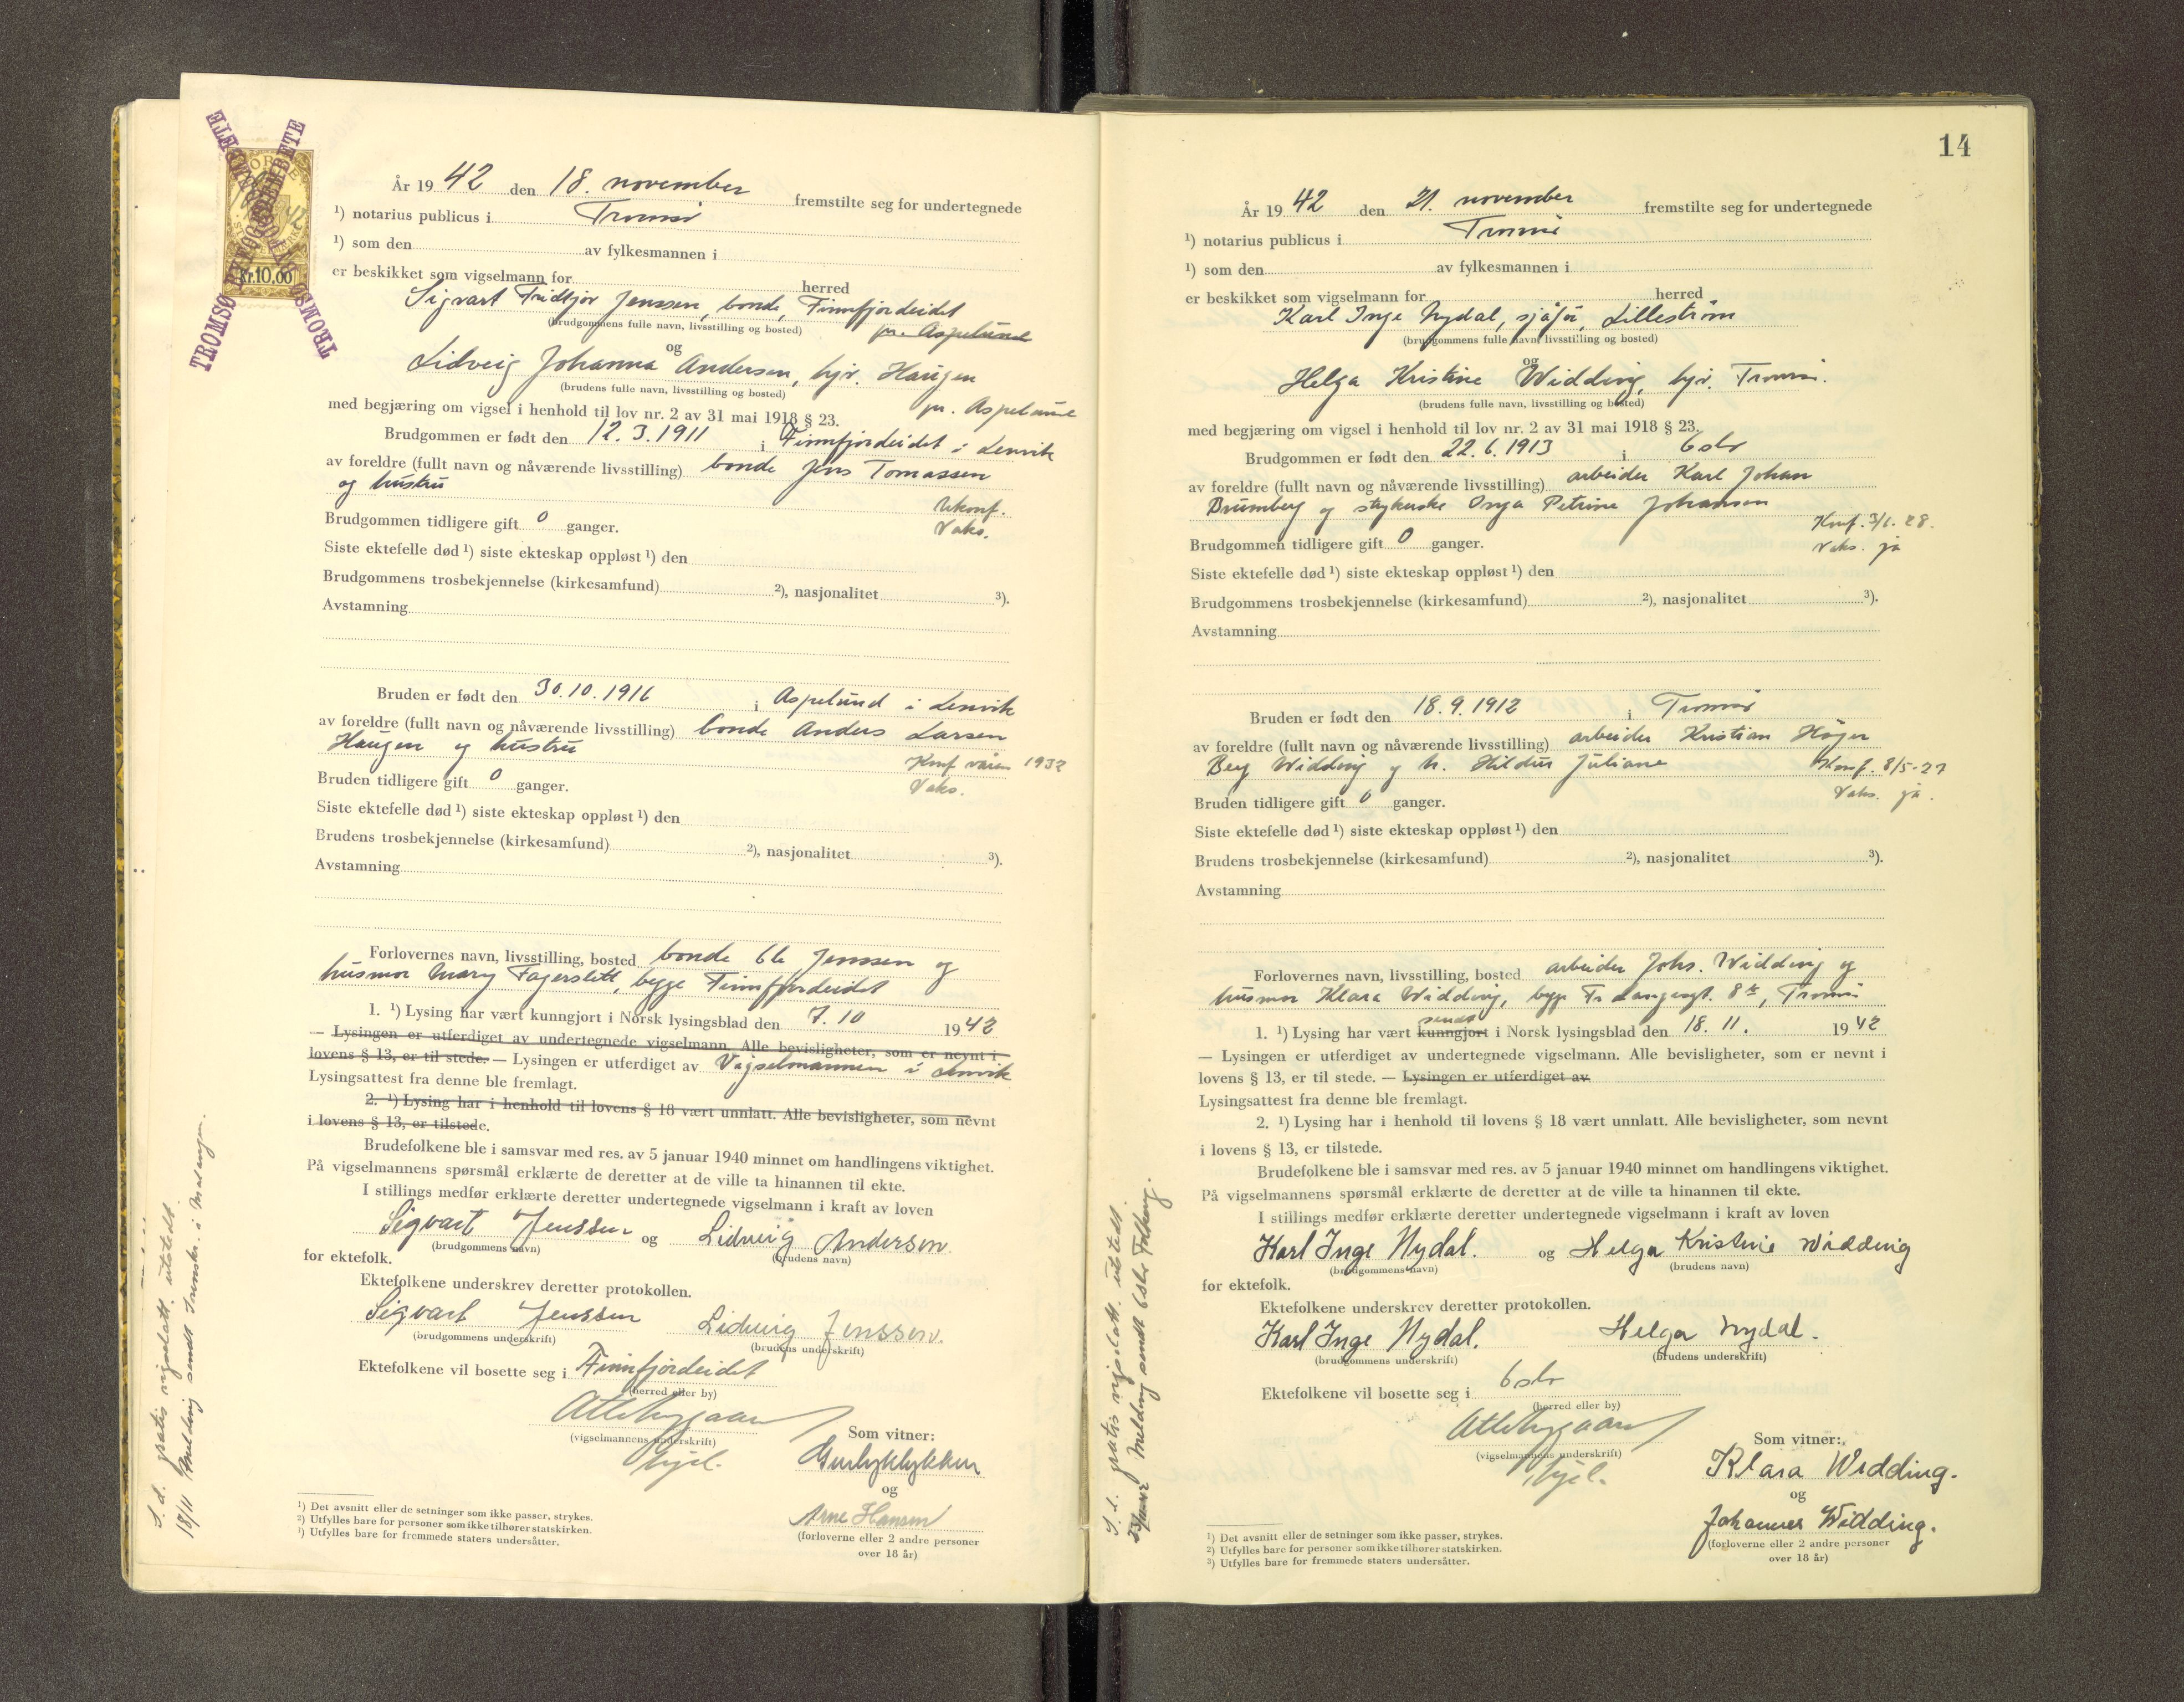 TROMSØ PENGEMBETE
TROMSØ
Kr.10,00
År 19 42 den 18. november fremstilte seg for undertegnede
¹) notarius publicus i Tromsø
¹) som den av fylkesmannen i
er beskikket som vigselmann for herred
Sigvart Fridtjof Jenssen, bonde, Finnfjordeidet
(brudgommens fulle navn, livsstilling og bosted) pr. Aspelund
og
Lidveig Johanna Andersen, hjv. Haugen
(brudens fulle navn, livsstilling og bosted)
pr. Aspelund
med begjæring om vigsel i henhold til lov nr. 2 av 31 mai 1918 § 23.
Brudgommen er født den 12.3.1911 i Finnfjordeidet i Lenvik
av foreldre (fullt navn og nåværende livsstilling) bonde Jens Tomassen
og hustru
Ukonf.
Brudgommen tidligere gift 0 ganger. Vaks.
Siste ektefelle død ¹) siste ekteskap oppløst ¹) den
Brudgommens trosbekjennelse (kirkesamfund) ²), nasjonalitet ³).
Avstamning
Bruden er født den 30.10.1916 i Aspelund i Lenvik
av foreldre (fullt navn og nåværende livsstilling) bonde Anders Larsen
Haugen og hustru
Konf våren 1932
Bruden tidligere gift 0 ganger. Vaks.
Siste ektefelle død ¹) siste ekteskap oppløst ¹) den
Brudens trosbekjennelse (kirkesamfund) ²), nasjonalitet ³).
Avstamning
Forlovernes navn, livsstilling, bosted bonde Ole Jenssen og
husmor Mary Fagerslett, begge Finnfjordeidet
1. ¹) Lysing har vært kunngjort i Norsk lysingsblad den 7.10 1942
— Lysingen er utferdiget av undertegnede vigselmann. Alle bevisligheter, som er nevnt i
lovens § 13, er til stede. — Lysingen er utferdiget av Vigselmannen i Lenvik
Lysingsattest fra denne ble fremlagt.
2. ¹) Lysing har i henhold til lovens § 18 vært unnlatt. Alle bevisligheter, som nevnt
i lovens § 13, er tilstede.
Brudefolkene ble i samsvar med res. av 5 januar 1940 minnet om handlingens viktighet.
På vigselmannens spørsmål erklærte de deretter at de ville ta hinannen til ekte.
I stillings medfør erklærte deretter undertegnede vigselmann i kraft av loven
Sigvart Jenssen og Lidveig Andersen.
(brudgommens navn) (brudens navn)
for ektefolk.
Ektefolkene underskrev deretter protokollen.
Sigvart Jenssen Lidveig Jenssen.
(brudgommens underskrift) (brudens underskrift)
Ektefolkene vil bosette seg i Finnfjordeidet
(herred eller by)
(vigselmannens underskrift)
Som vitner:
og
Arne Hansen
(forloverne eller 2 andre personer
over 18 år)
¹) Det avsnitt eller de setninger som ikke passer, strykes.
²) Utfylles bare for personer som ikke tilhører statskirken.
³) Utfylles bare for fremmede staters undersåtter.
S. d. gratis vigselatt. utstedt.
18/11 Melding sendt i Malangen.
14
År 19 42 den 21. november fremstilte seg for undertegnede
¹) notarius publicus i Tromsø
¹) som den av fylkesmannen i
er beskikket som vigselmann for herred
Karl Inge Nydal, sjåfør, Lillestrøm
(brudgommens fulle navn, livsstilling og bosted)
og
Helga Kristine Widding, hjv. Tromsø.
(brudens fulle navn, livsstilling og bosted)
med begjæring om vigsel i henhold til lov nr. 2 av 31 mai 1918 § 23.
Brudgommen er født den 22.6.1913 i Oslo
av foreldre (fullt navn og nåværende livsstilling) arbeider Karl Johan
Brumberg og strykerske Inga Petrine Johansen
Konf. 3/6. 28.
Brudgommen tidligere gift 0 ganger. Vaks. ja
Siste ektefelle død ¹) siste ekteskap oppløst ¹) den
Brudgommens trosbekjennelse (kirkesamfund) ²), nasjonalitet ³).
Avstamning
Bruden er født den 18.9.1912 i Tromsø
av foreldre (fullt navn og nåværende livsstilling) arbeider Kristian Høger
Berg Widding og h. Hildur Juliane
Konf. 8/5-27
Bruden tidligere gift 0 ganger. Vaks. ja.
Siste ektefelle død ¹) siste ekteskap oppløst ¹) den
Brudens trosbekjennelse (kirkesamfund) ²), nasjonalitet ³).
Avstamning
Forlovernes navn, livsstilling, bosted arbeider Johs. Widding og
husmor Klara Widding, begge Fr. Langesgt. 8, Tromsø
1. ¹) Lysing har vært kunngjort sendt i Norsk lysingsblad den 18. 11. 1942
— Lysingen er utferdiget av undertegnede vigselmann. Alle bevisligheter, som er nevnt i
lovens § 13, er til stede. — Lysingen er utferdiget av
Lysingsattest fra denne ble fremlagt.
2. ¹) Lysing har i henhold til lovens § 18 vært unnlatt. Alle bevisligheter, som nevnt
i lovens § 13, er tilstede.
Brudefolkene ble i samsvar med res. av 5 januar 1940 minnet om handlingens viktighet.
På vigselmannens spørsmål erklærte de deretter at de ville ta hinannen til ekte.
I stillings medfør erklærte deretter undertegnede vigselmann i kraft av loven
Karl Inge Nydal. og Helga Kristine Widding
(brudgommens navn) (brudens navn)
for ektefolk.
Ektefolkene underskrev deretter protokollen.
Karl Inge Nydal. Helga Nydal.
(brudgommens underskrift) (brudens underskrift)
Ektefolkene vil bosette seg i Oslo
(herred eller by)
(vigselmannens underskrift)
Som vitner:
Klara Widding.
og
Johannes Widding.
(forloverne eller 2 andre personer
over 18 år)
¹) Det avsnitt eller de setninger som ikke passer, strykes.
²) Utfylles bare for personer som ikke tilhører statskirken.
³) Utfylles bare for fremmede staters undersåtter.
S. d. gratis vigselatt. utstedt
Melding sendt Oslo Folkereg.